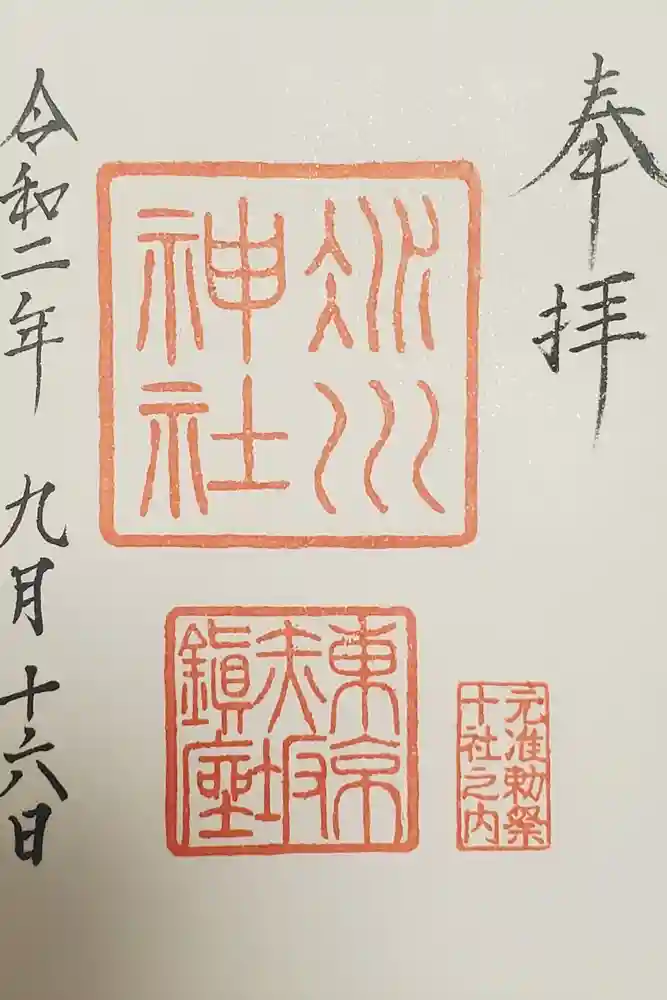 奉拝
氷川
神社
東京
赤坂
鎮座
元准勅祭
十社之内
令和二年 九月十六日